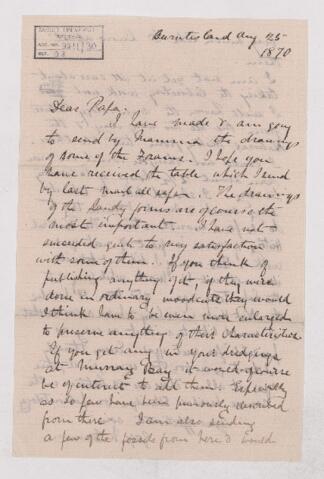 Burntisland Aug 25
1870
Dear Papa.
I have made & am going
to send by Mamma the drawings
of some of the Forams. I hope you
have received the table which I send
by last mail all safe. The drawings
of the Sandy forms are of course the
most important. I have not
succeeded quite to my satisfaction
with some of them. If you think of
publishing anything of it, if they were
done in ordinary woodcuts they would
I think have to be even more enlarged
to preserve anything of their characteristics
If you get any in your dredgings
at Murray Bay it would of course
be of interest to add them. Especially
as so few have been previously described
from there I am also sending
a few of the fossils from here & would